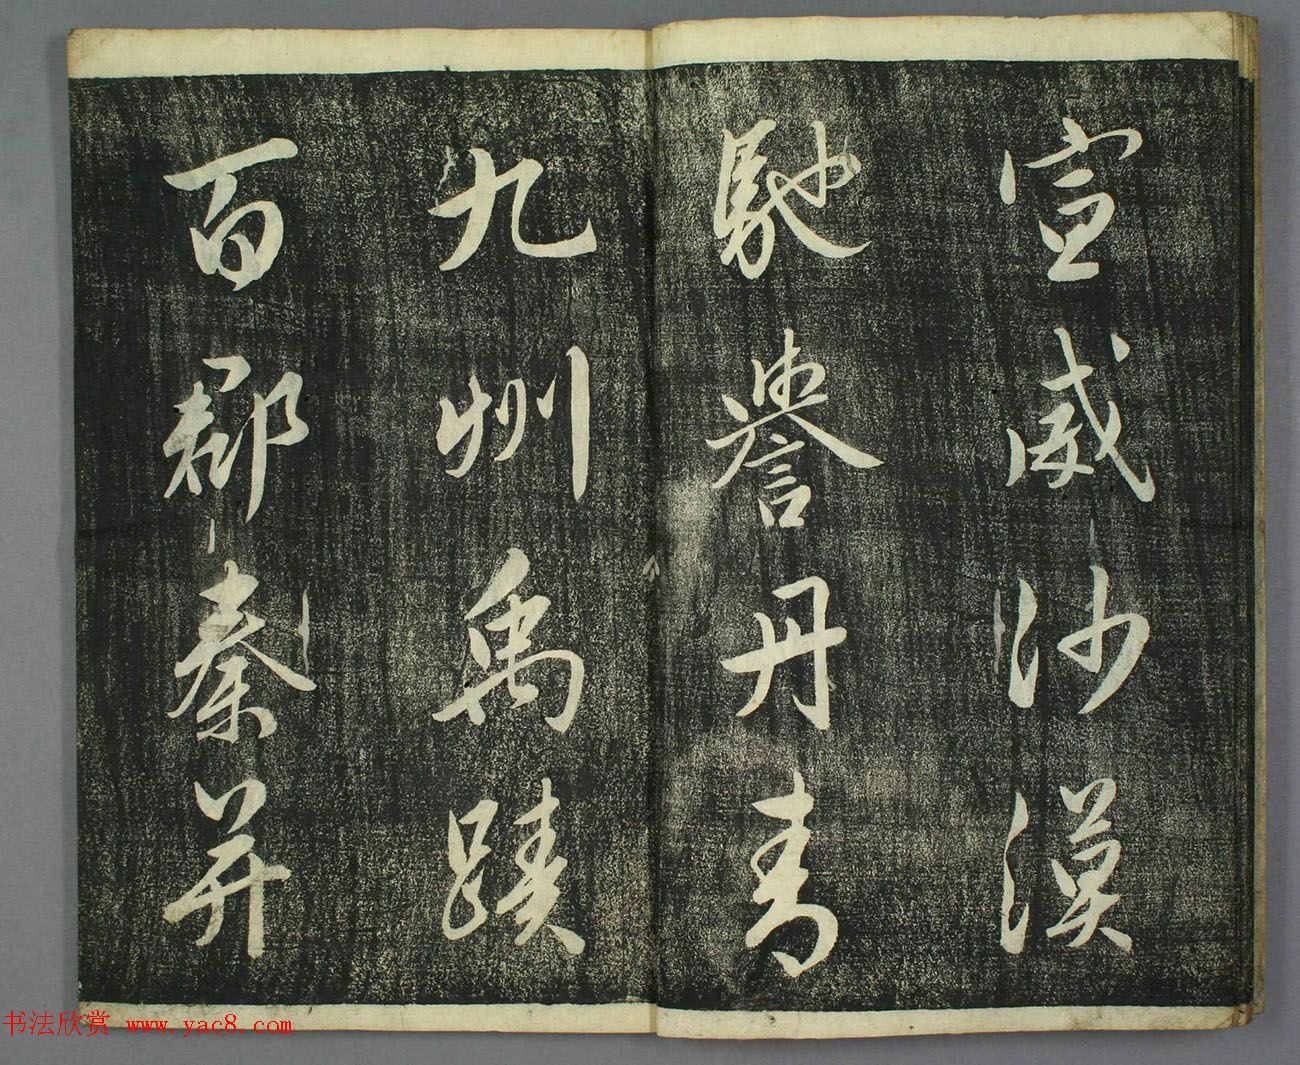 宣威沙漠
馳譽丹青
九州禹蹟
百郡秦并
书法欣赏 www.yac8.com